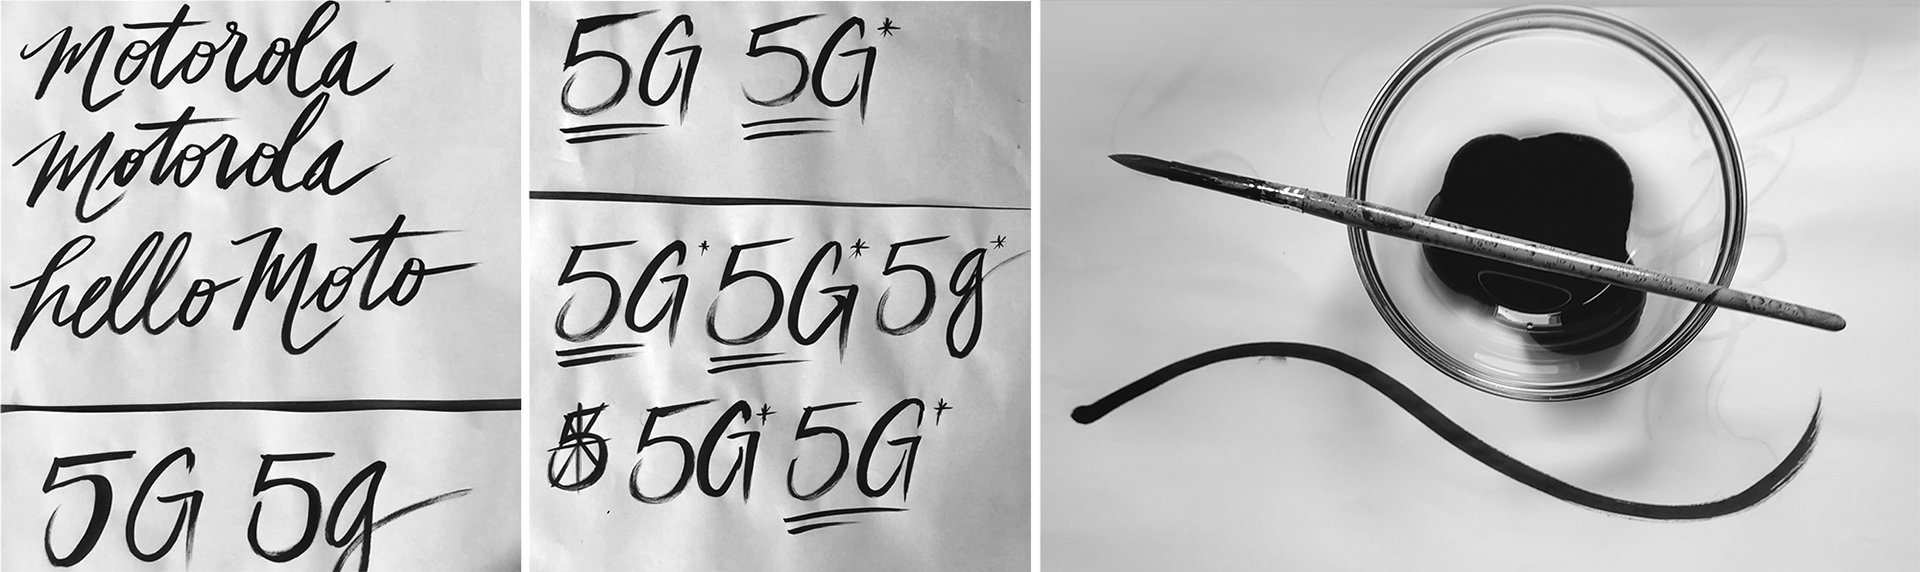 Motorola
Motorola
hello Moto
5G 5g
5G 5G*
5G* 5G* 5g*
5G* 5G*